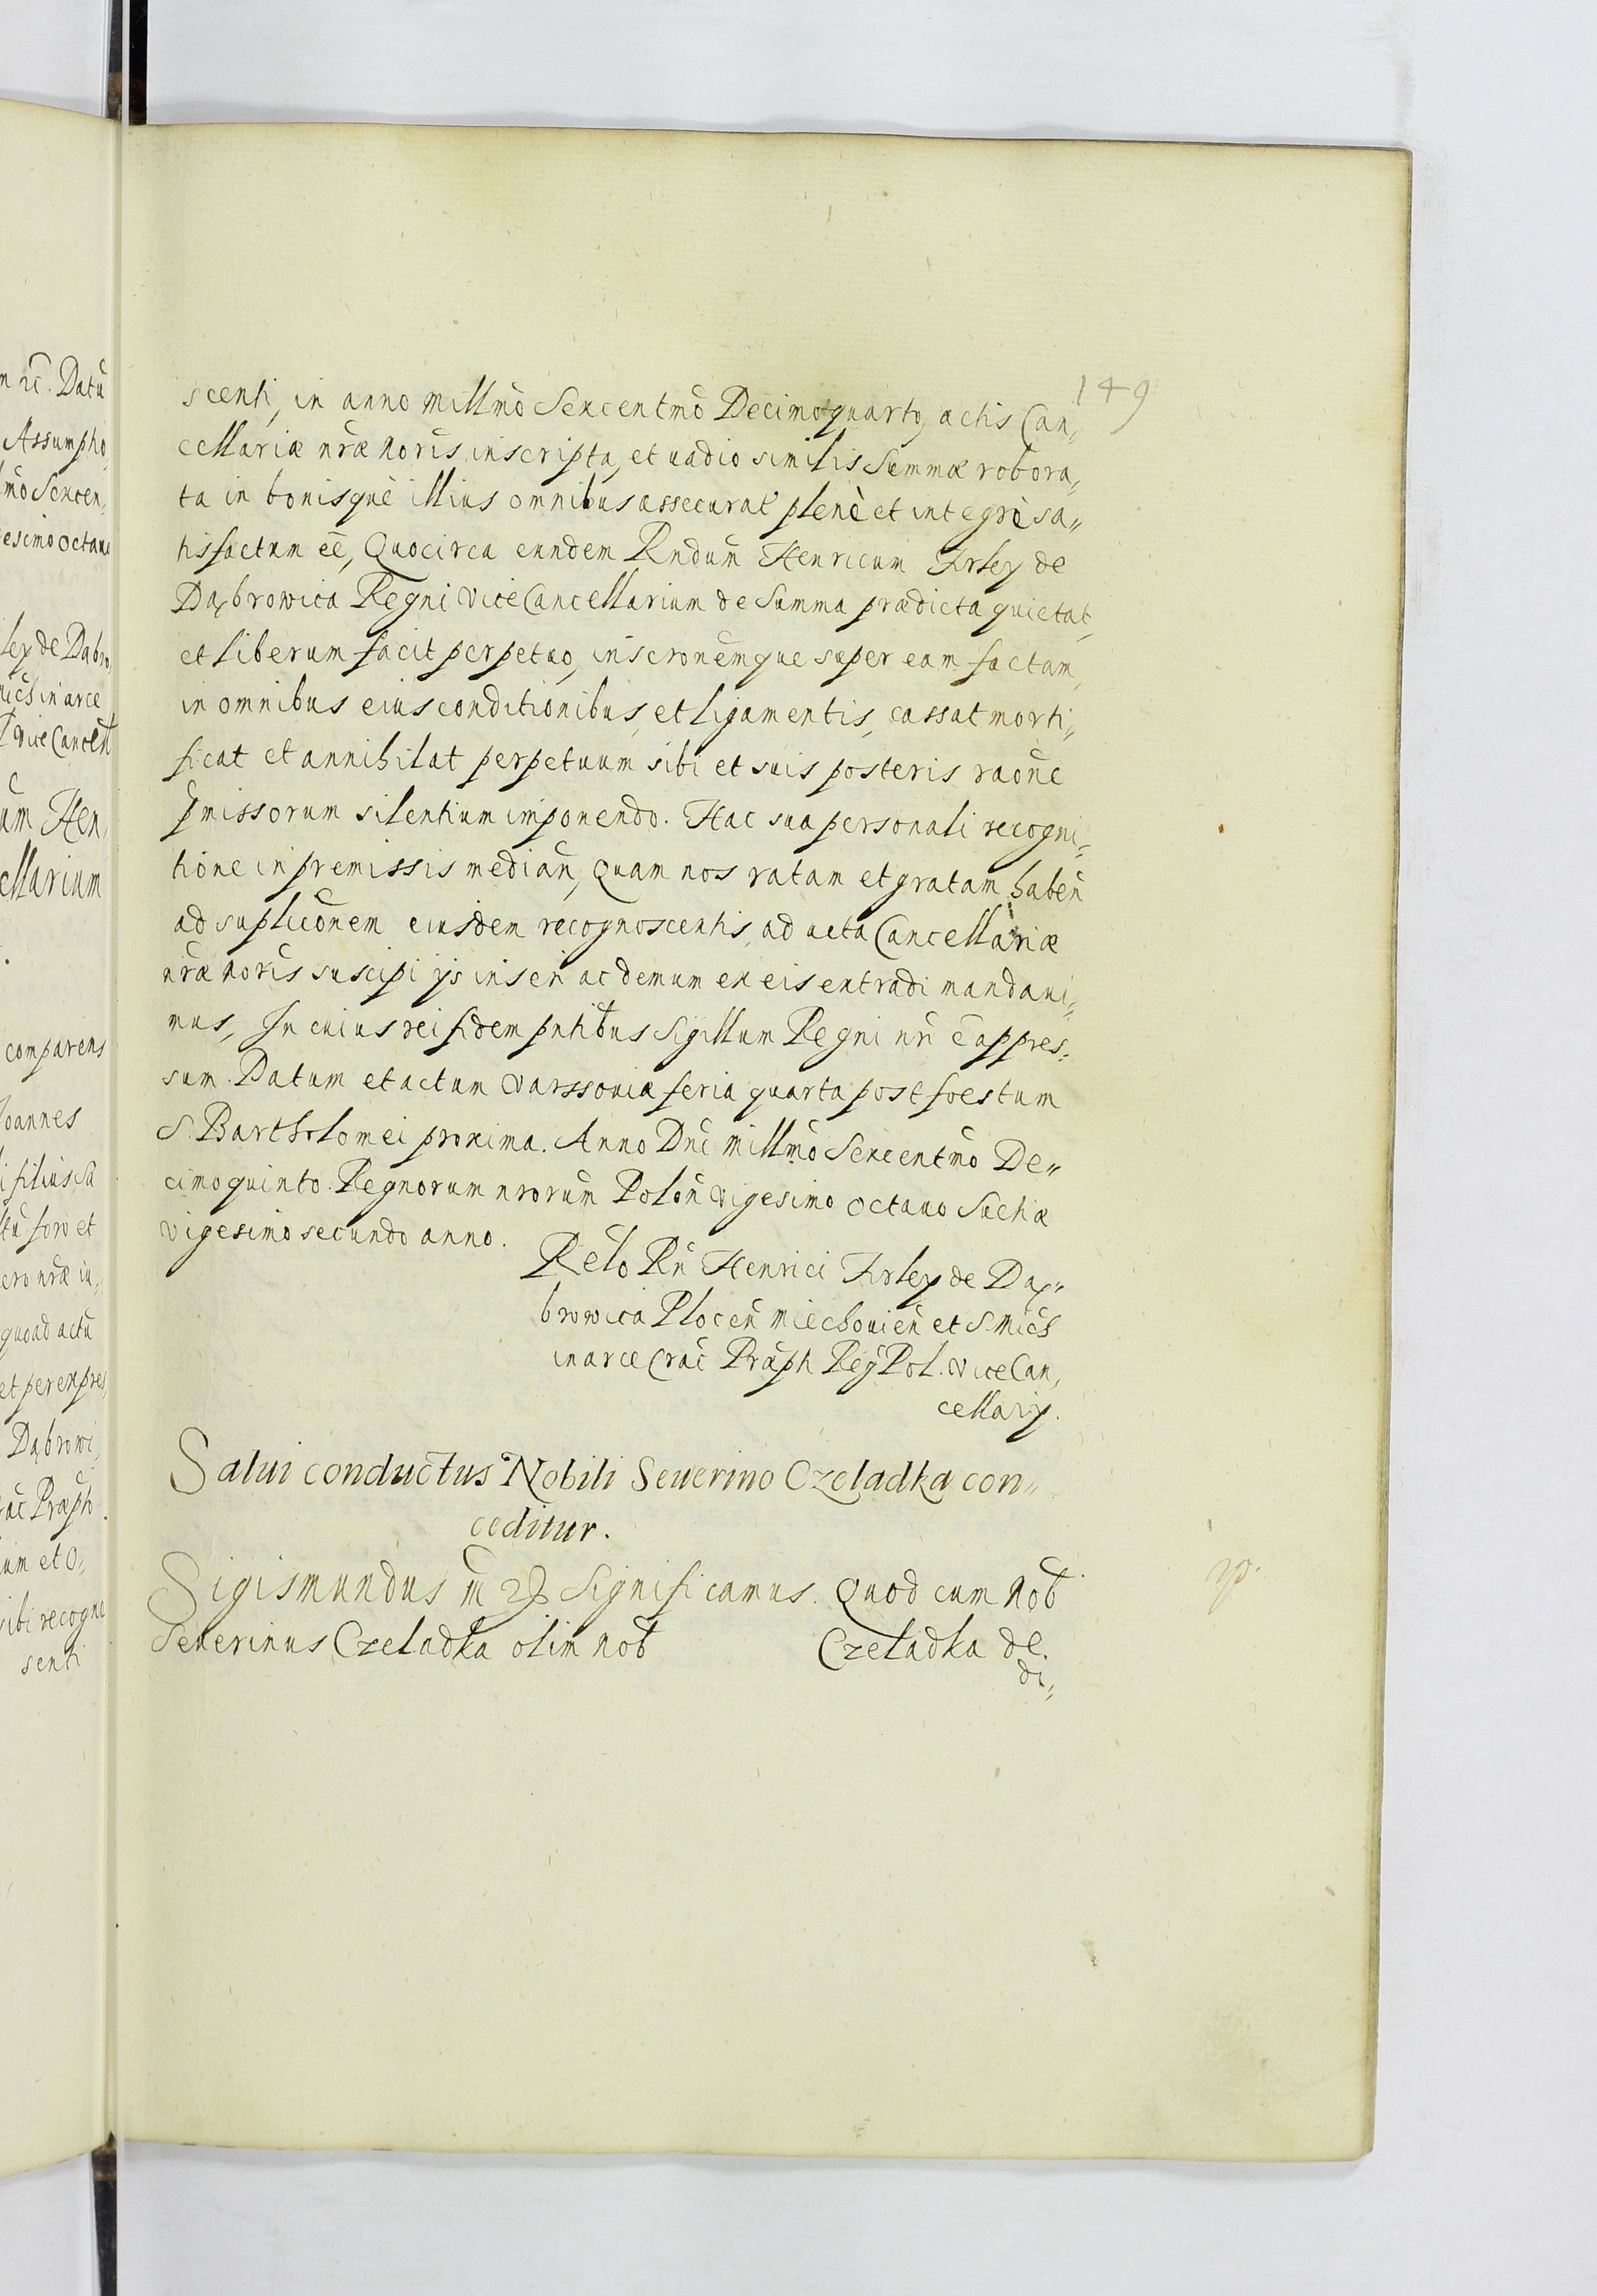 149
scenti, in anno millmo Sexcentmo Decimoquarto, actis Can„
cellariæ nræ noris, inscripta, et vadio similis Summæ robora„
ta in bonisque illius omnibus assecurat plenè et integrè sa„
tisfactum eē, Quocirca eundem Rndum Henricum Firley de
Dąbrowica Regni ViceCancellarium de Summa prædicta quietat,
et liberum facit perpetuo, inscronemque super eam factam,
in omnibus eius conditionibus, et ligamentis, cassat morti„
ficat et annihilat perpetuum sibi et suis posteris raone
pmissorum silentium imponendo. Hac sua personali recogni„
tione in premissis median, Quam nos ratam et gratam haben
ad suplicōnem eiusdem recognoscentis, ad acta Cancellariæ
nræ noris suscipi ijs inseri ac demum ex eis extradi mandaui„
mus, In cuius rei fidem pntibus Sigillum Regni nri ē appres„
sum. Datum et actum Varssouiæ feria quarta post foestum
S. Bartholomei proxima. Anno Dni millmo Sexcentmo De„
cimoquinto. Regnorum nrorum Polon Vigesimo octauo Suetiæ
vigesimo secundo anno.
Relo Rn Henrici Firley de Dą„
browica Plocen Miechouien et S. Mich
in arce Crac Præph Reg Pol. ViceCan„
cellarij.
Salui conductus Nobili Seuerino Czeladka con„
ceditur.
Sigismundus III &c Significamus. Quod cum Nob
Seuerinus Czeladka olim Nob Czeladka de
di„
n &c. Datū
Assumptio„
lmo Sexcen„
esimo octauo
ley de Dąbro„
Mich in arce
ViceCancell
um Hen„
cellarium
comparens
Joannes
filius
foro et
quoad actū
et per expres„
Dąbrowi„
Crac Præph.
um et
sibi recogno
senti